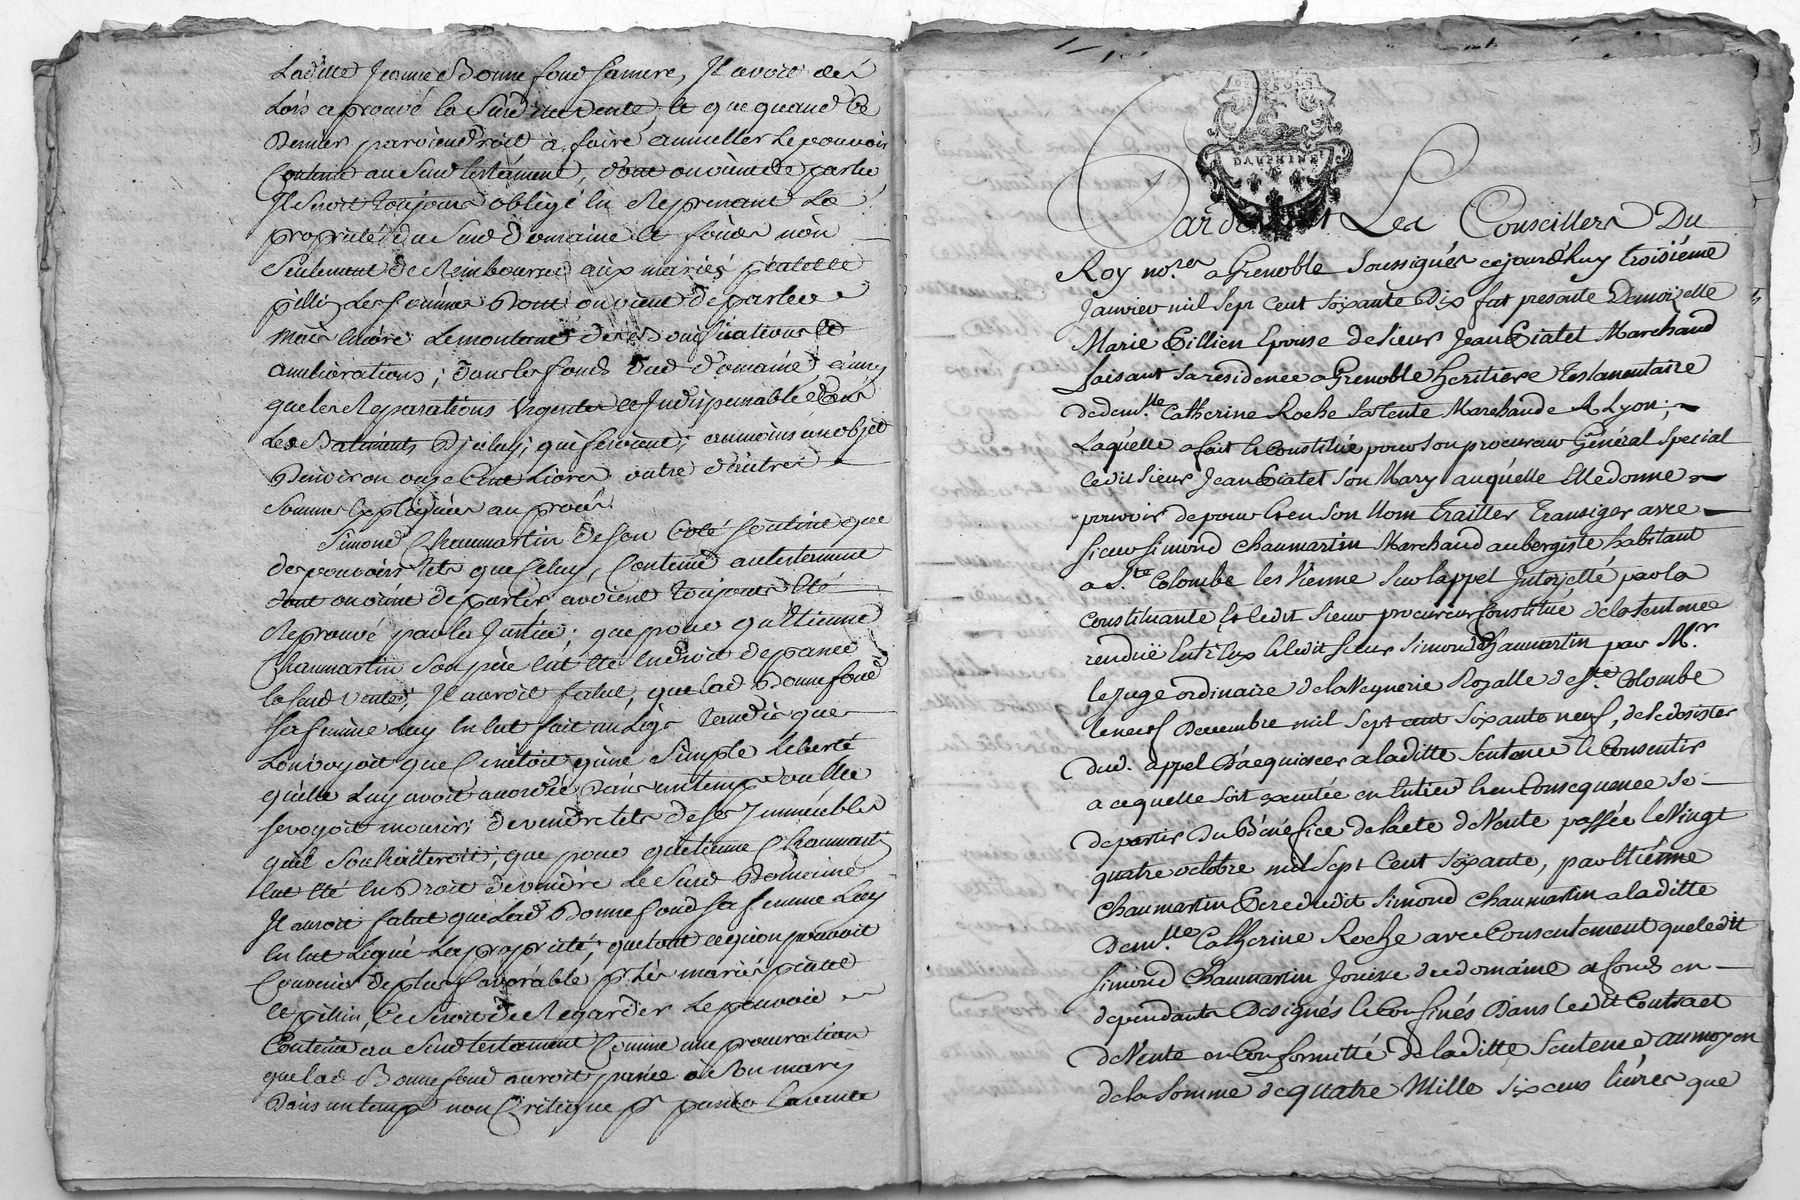 Laditte Jeanne Bonnefond sa mere, Il avoit dès
Lors aprouvé la Sud. vente, et que quand Ce
Dernier parviendroit à faire annuller Le pouvoir
Contenu au Sud testament, dont on vient de parler
Il Seroit toujours obligé en Reprenant La
propriété du Sud Domaine et fonds non
Seulement de Rembourser aux mariés piatet et
pillin Les sommes Dont on vient de parler
mais encore Le montant des Bonifications et
ameliorations, dans les fonds dud domaine, ainsy
que les Reparations Urgentes et Indispensables dans
Les Batiments D'iceluy, qui seroient, au moins un objet
Denviron onze Cent Livres outre d'autres
Sommes Expliquées au procès.
Simond Chaumartin de son Coté soutient que
des pouvoirs tels que Celuy, Contenu au testament
dont on vient de parler, avoient toujours Eté
Reprouvé par la Justice; que pour qu'Etienne
Chaumartin Son père eut été en droit de passer
la Sud vente, Il auroit falut, que lad Bonnefond
sa femme Luy en eut fait un Legs tandis que
Lon voyoit que Ce n'étoit qu'une Simple liberté
qu'elle Luy avoit accordée, Dans un temps ou Elle
se voyoit mourir, de vendre tels de ses Immeubles
quil Souhaitteroit; que pour qu'etienne Chaumartin
eut été en Droit de vendre Le Sud Domaine
Il auroit falut que Lad Bonnefond sa femme Luy
en eut Légué La propriété; que tout ce qu'on pouvoit
Convenir de plus favorable pr Les mariés piatet
et pillin, Ce Seroit de Regarder Le pouvoir
Contenu au Sud testament Comme une procuration
que lad Bonnefond auroit passée à Son mary
Dans un temps non Critique pr passer la vente
DAUPHINE
Pardevant Les Conseillers Du
Roy nores a Grenoble Soussignés cejourd'huy troisiéme
Janvier mil Sept cent Soixante Dix fut presante Demoizelle
Marie Pillien Epouse de Sieur Jean Piatet Marchand
faisant sa résidence a Grenoble heritiere Testamentaire
de demlle Catherine Roche sa tente Marchande A Lyon;
Laquelle a fait et constitué pour son procureur Général Special
ledit Sieur Jean Piatet son Mary auquelle Elle donne
pouvoir de pour Et en Son Nom Traitter Transiger avec
Sieur Simond Chaumartin Marchand aubergiste habitant
a Ste Colombe les Vienne Sur l'appel Interjetté par la
constituante, Et ledit Sieur procureur Constitué de la Sentence
renduë Entr'Eux et ledit Sieur Simond Chaumartin par Mr
le Juge ordinaire de la Veguerie Royalle de Ste Colombe
le neuf Decembre mil Sept cent Soixante neuf, de se desister
dud. appel D'acquiescer a laditte Sentence et Consentir
a ce quelle soit executée en Entier Et en Consequence se
departir du Bénéfice de l'acte de Vente passée le Vingt
quatre octobre mil Sept Cent Soixante, par Etiénne
Chaumartin Pere dudit Simond Chaumartin a laditte
Demlle Catherine Roche avec Consentement que ledit
Simond Chaumartin Jouisse du domaine et fonds en
dependants Designés et Confinés Dans ledit Contract
de Vente en Conformitté de laditte Sentence au moyen
de la Somme de quatre Mille Six cens livres que